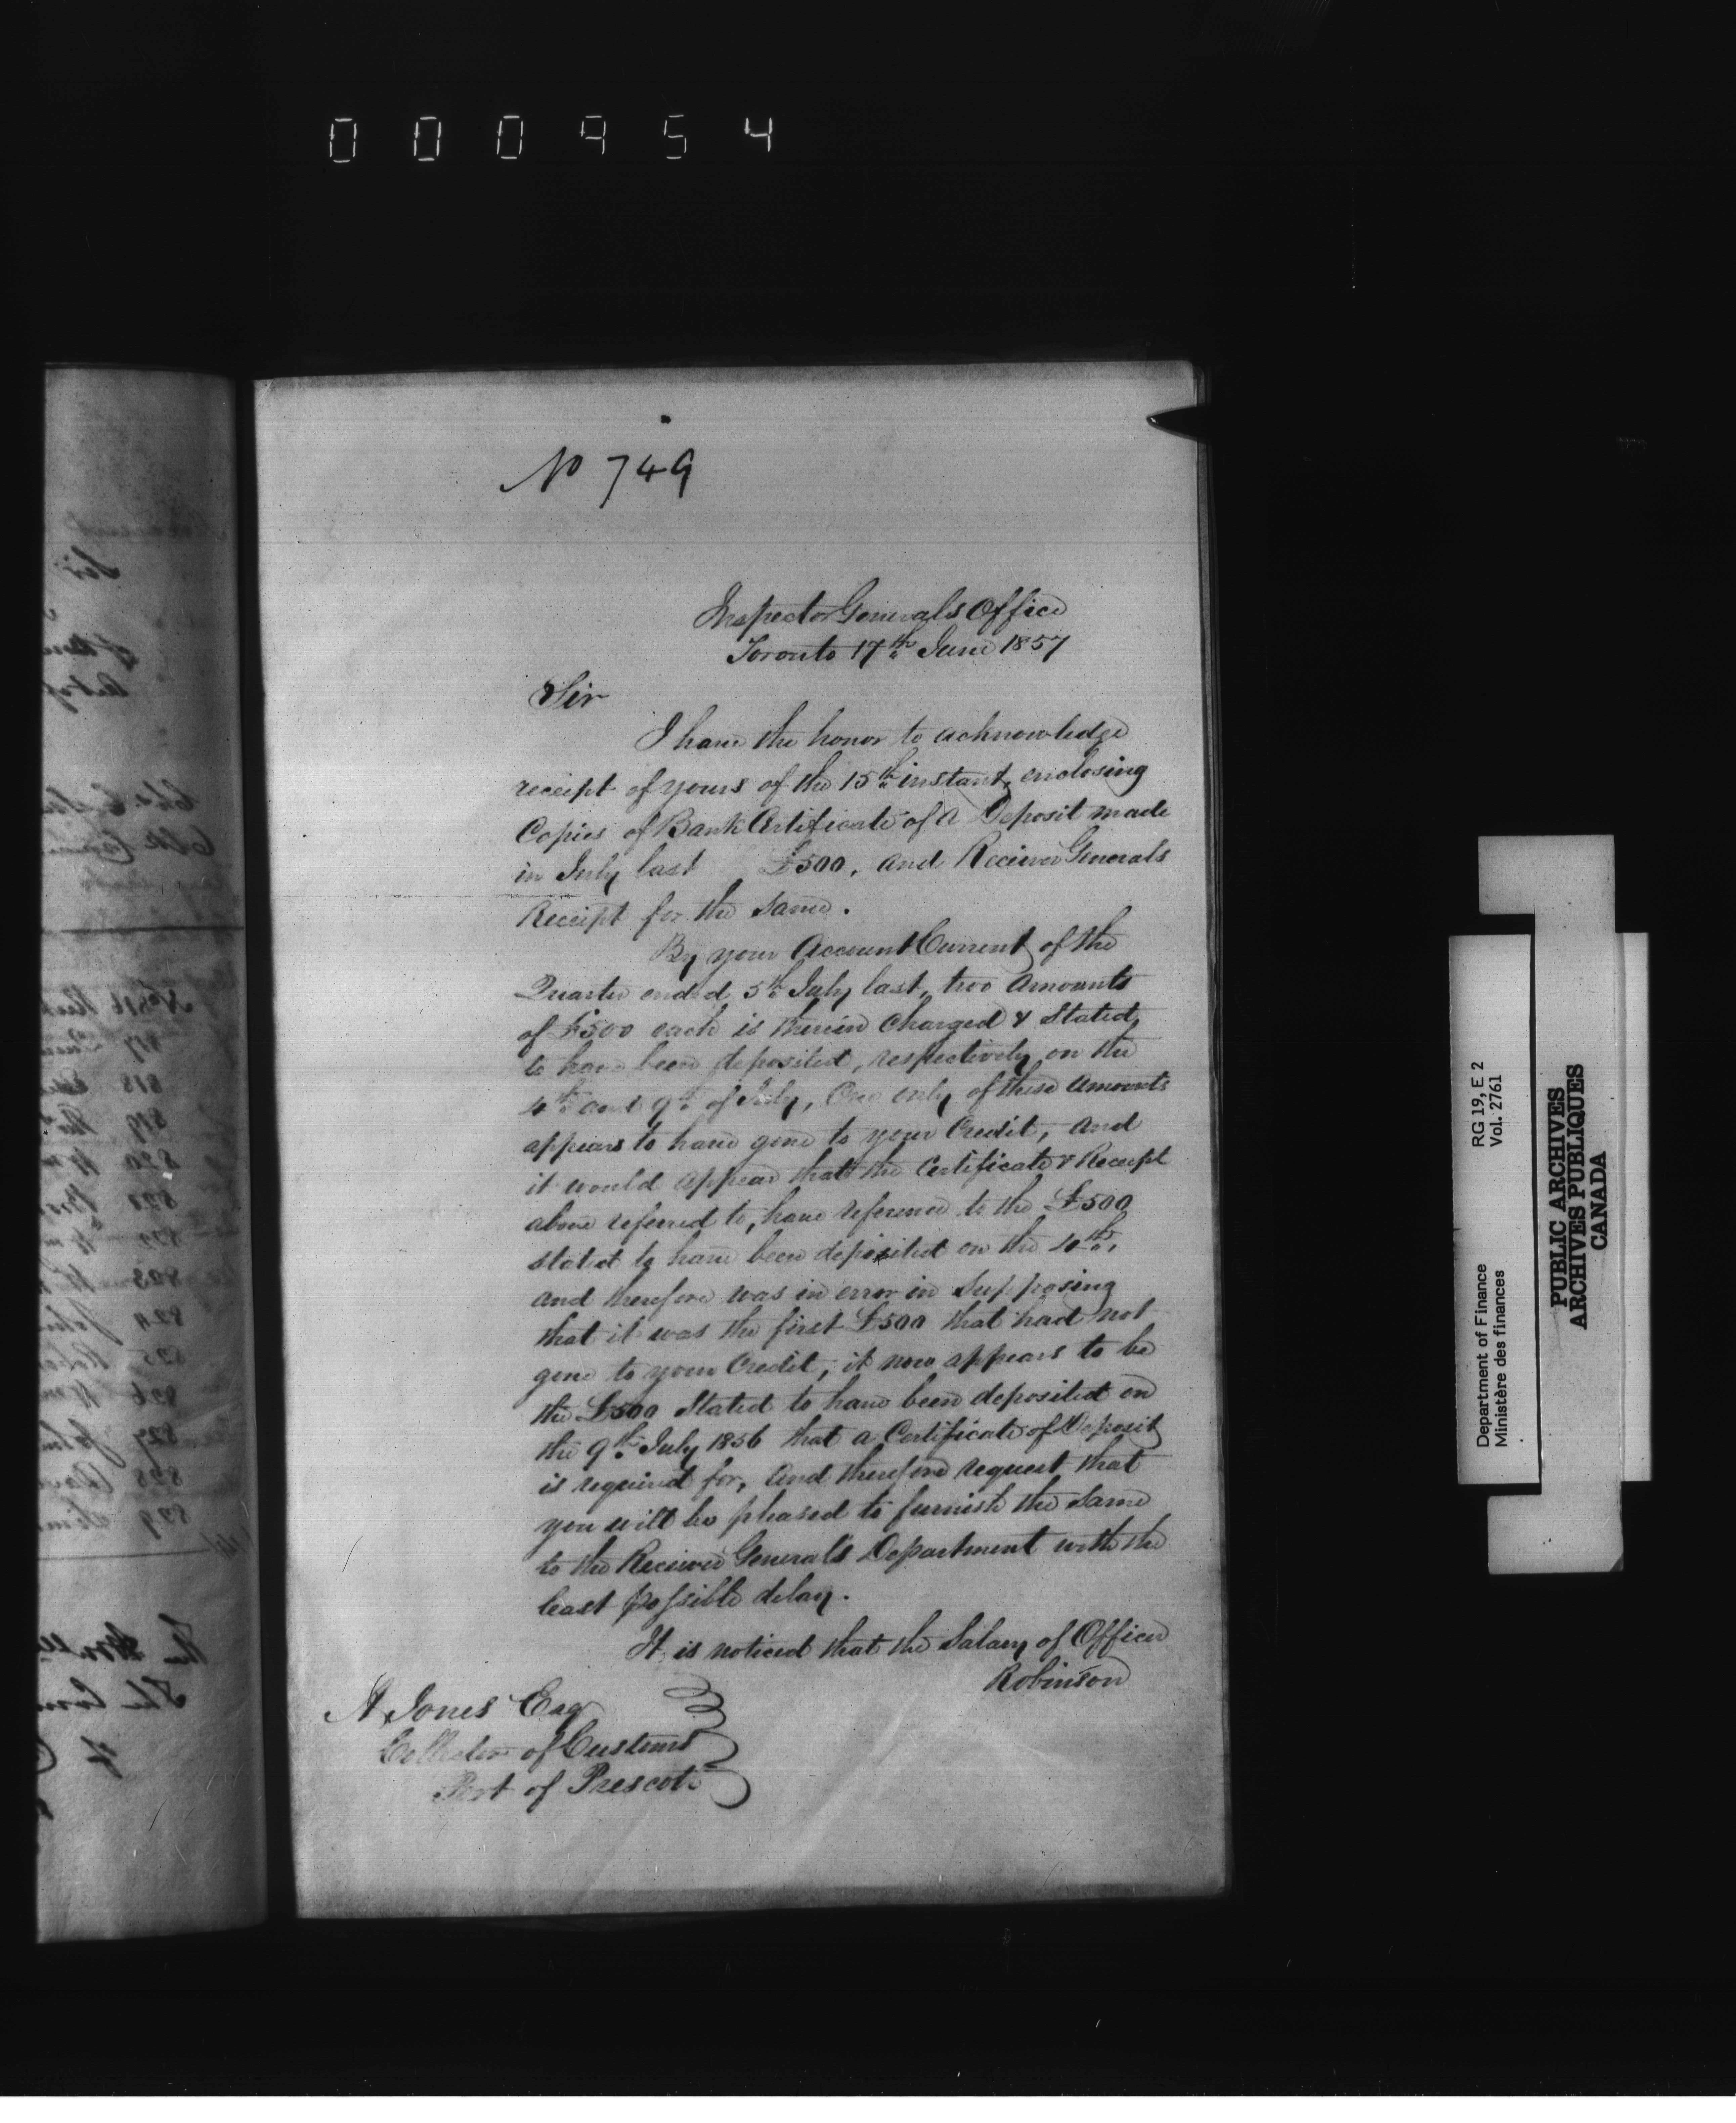 000954
No 749
Inspector Generals Office
Toronto 17th June 1857
Sir
I have the honor to acknowledge
receipt of yours of the 15th instant, enclosing
Copies of Bank Certificate of a Deposit made
in July last £500, and Receiver Generals
Receipt for the same.
By your Account Current of the
Quarter ended 5th July last, two amounts
of £500 each is therein Charged & Stated
to have been deposited, respectively on the
4th and 9th of July, One only of these amounts
appears to have gone to your Credit, and
it would appear that the Certificate & Receipt
above referred to, have reference to the £500
stated to have been deposited on the 4th,
and therefore was in error in Supposing
that it was the first £500 that had not
gone to your Credit, it now appears to be
the £500 Stated to have been deposited on
the 9th July 1856 that a Certificate of Deposit
is required for, and therefore request that
you will be pleased to furnish the same
to the Receiver General's Department with the
least possible delay.
It is noticed that the Salary of Officer
Robinson
A Jones Esq
Collector of Customs
Port of Prescott
Department of Finance RG 19, E 2
Ministère des finances Vol. 2761
PUBLIC ARCHIVES
ARCHIVES PUBLIQUES
CANADA